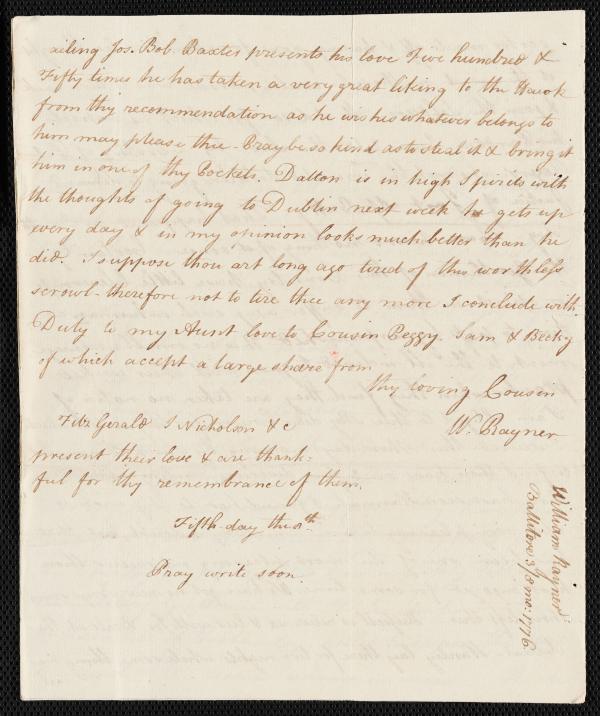 ailing Jos. Bob. Baxter presents his love Five hundred &
Fifty times he has taken a very great liking to the Hawk
from thy recommendation as he wishes whatever belongs to
him may please thee - Pray be so kind as to steal it & bring it
him in one of thy Pockets. Dalton is in high Spirits with
the thoughts of going to Dublin next week he gets up
every day & in my opinion looks much better than he
did. I suppose thou art long ago tired of this worthless
scrowl - therefore not to tire thee any more I conclude with
Duty to my Aunt love to Cousin Peggy. Sam & Becky
of which accept a large share from
thy loving Cousin
W. Rayner
Fitz Gerald J Nicholson &c
present their love & are thank-
ful for thy remembrance of them.
Fifth-day the
Pray write soon.
William Rayner
Ballitore 3/8 mo: 1776